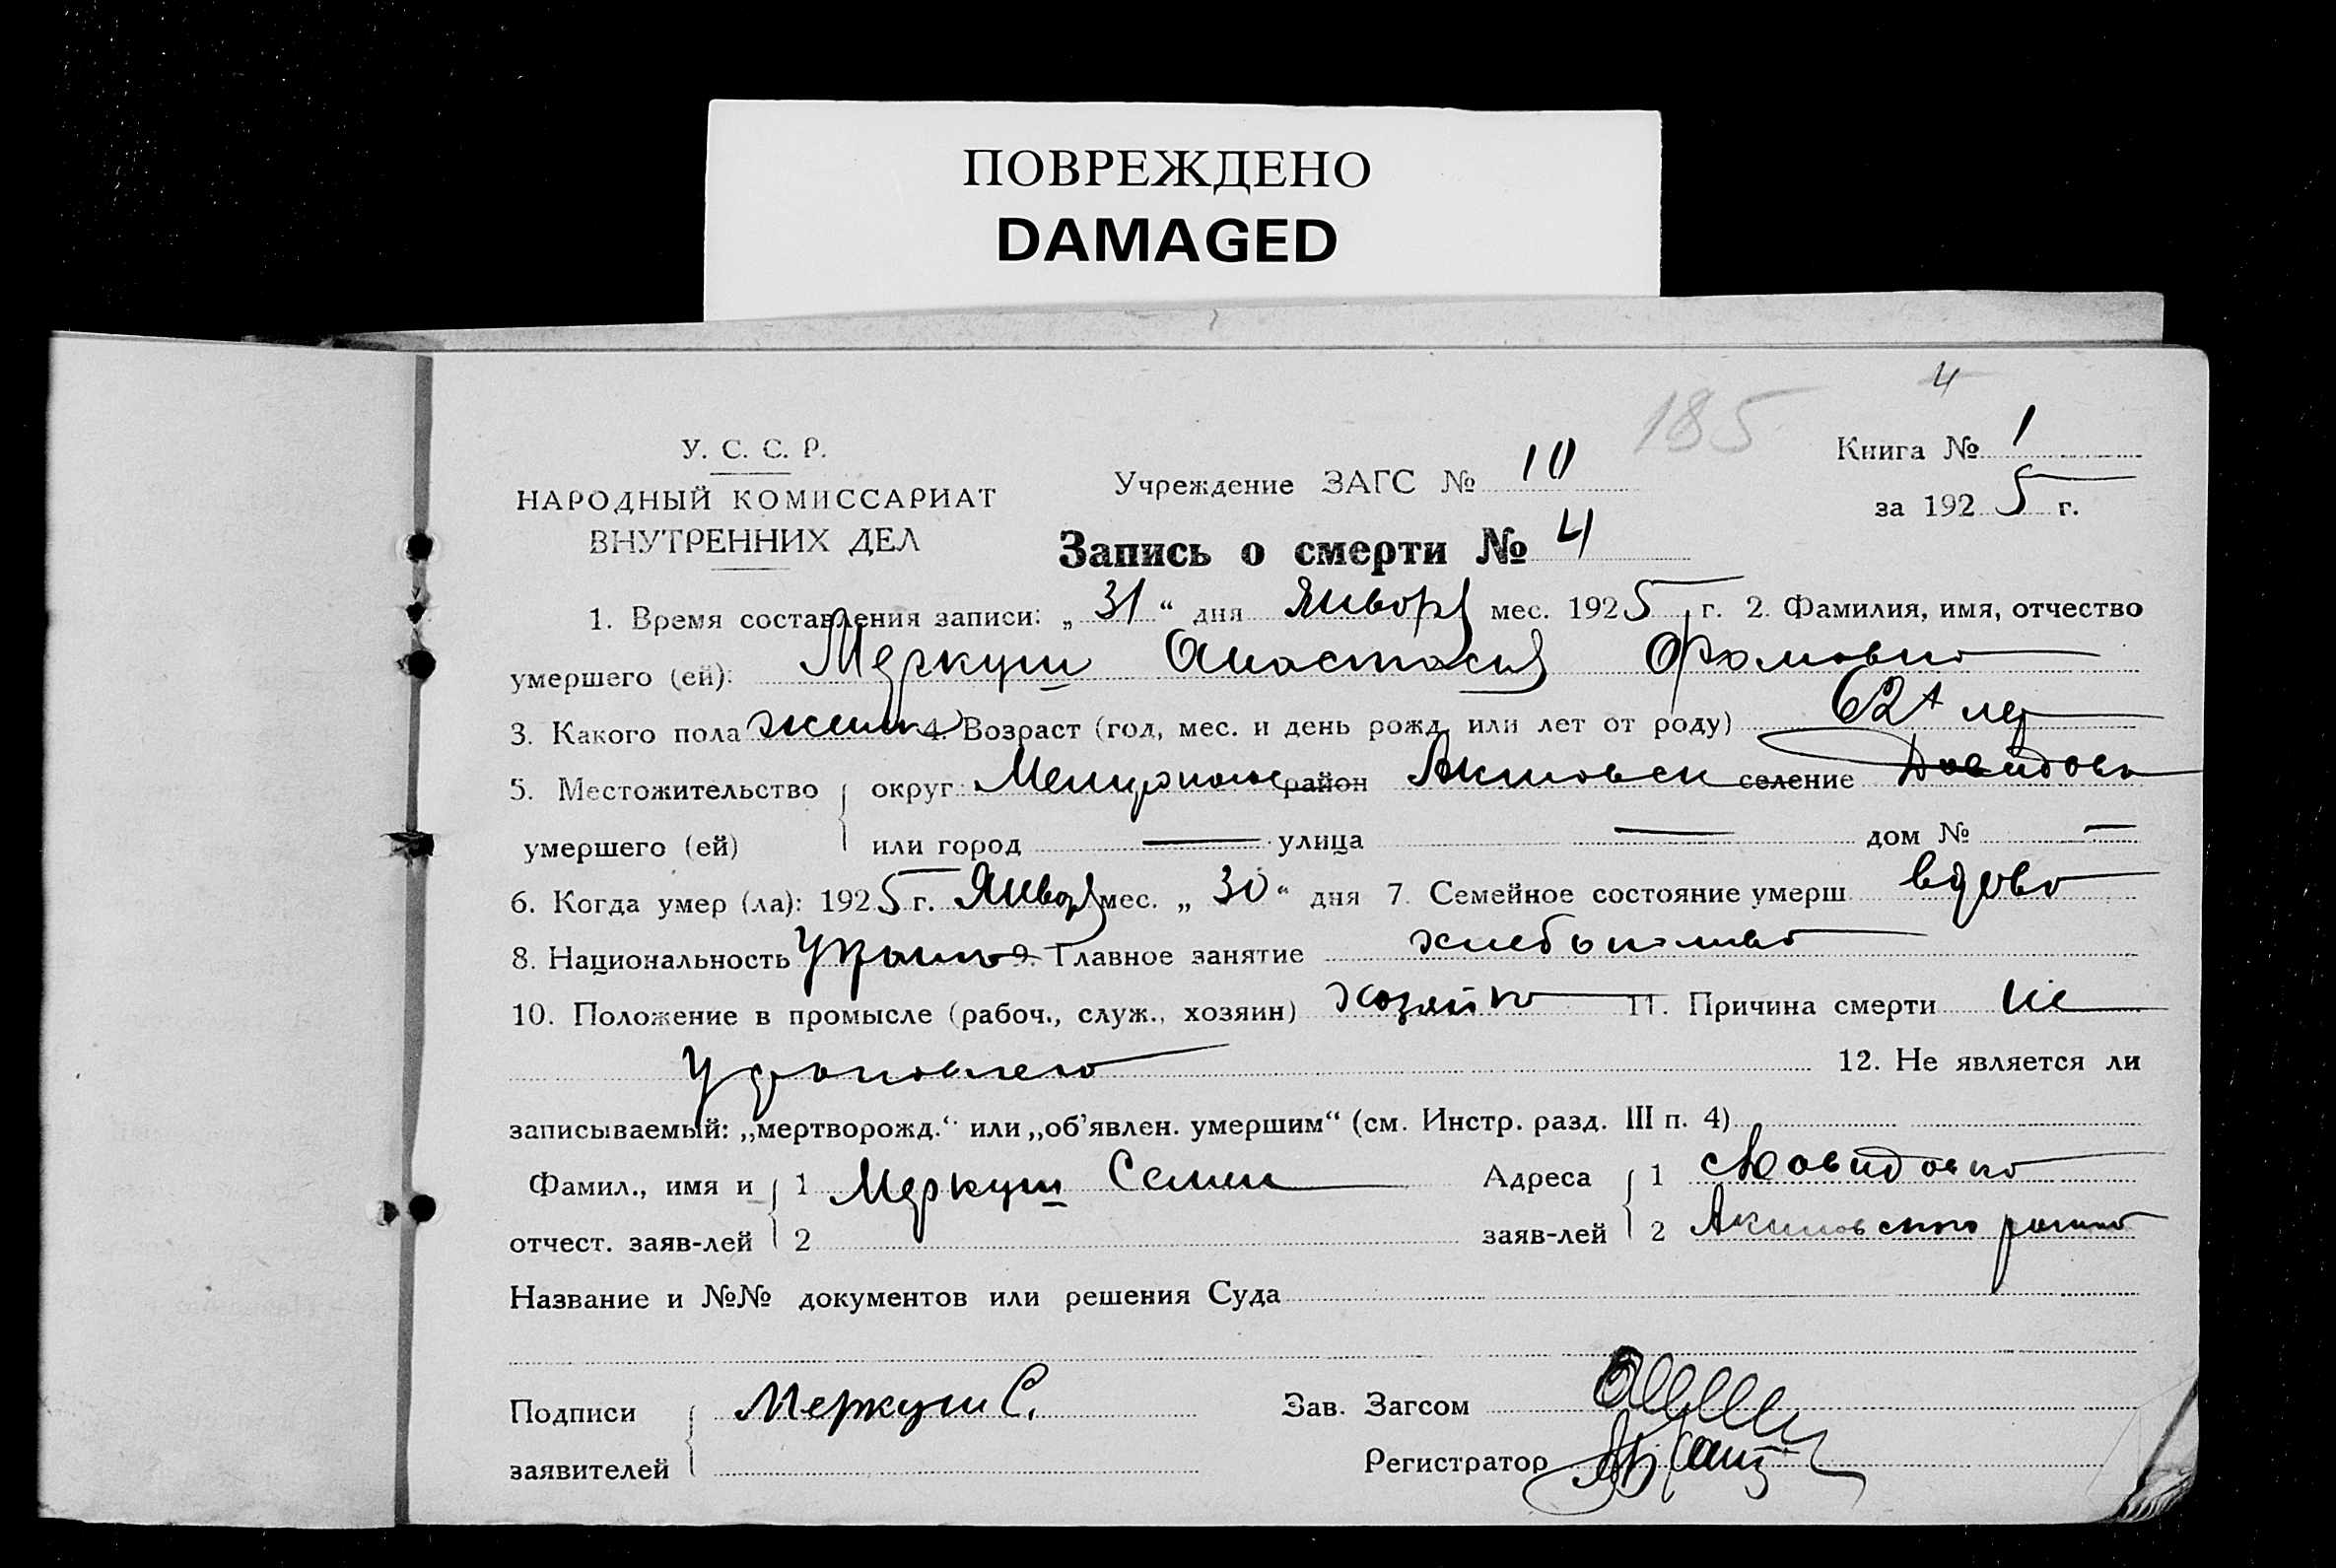 ПОВРЕЖДЕНО
DAMAGED
4
185
У. С. С. Р.
НАРОДНЫЙ КОМИССАРИАТ
ВНУТРЕННИХ ДЕЛ
Учреждение ЗАГС № 10
Книга № 1
за 1925 г.
Запись о смерти № 4
1. Время составления записи: „ 31 “ дня Января мес. 1925 г. 2. Фамилия, имя, отчество
умершего (ей): Меркуш Анастасия Фомовна
3. Какого пола женск 4. Возраст (год, мес. и день рожд. или лет от роду) 62 лет
5. Местожительство округ Мелитополь район Акимовск селение Давидовк
умершего (ей) или город — улица — дом № —
6. Когда умер (ла): 1925 г. Января мес. „ 30 “ дня 7. Семейное состояние умерш. вдова
8. Национальность Украин 9. Главное занятие
10. Положение в промысле (рабоч., служ., хозяин) хозяйка 11. Причина смерти не
установлено 12. Не является ли
записываемый: „мертворожд.“ или „об’явлен. умершим“ (см. Инстр. разд. III п. 4)
Фамил., имя и 1 Меркуш Семен Адреса 1 Давидовка
отчест. заяв-лей 2 заяв-лей 2 Акимовского района
Название и №№ документов или решения Суда
Подписи Меркуш С. Зав. Загсом
заявителей Регистратор